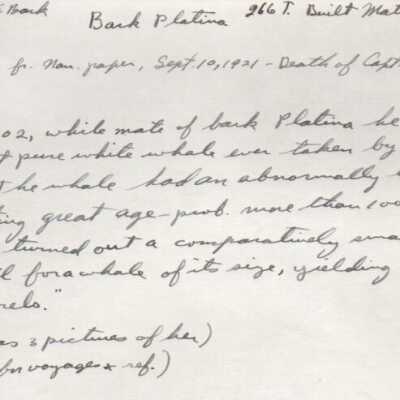 Bark Bark Platina 266 T. Built Mat
fr. Nan. paper, Sept. 10, 1921 - Death of Capt
02, while mate of bark Platina he
pure white whale ever taken by
he whale had an abnormally
ing great age - prob. more than 100
turned out a comparatively sma
l for a whale of its size, yielding
rels."
as 3 pictures of her)
for voyages & ref.)